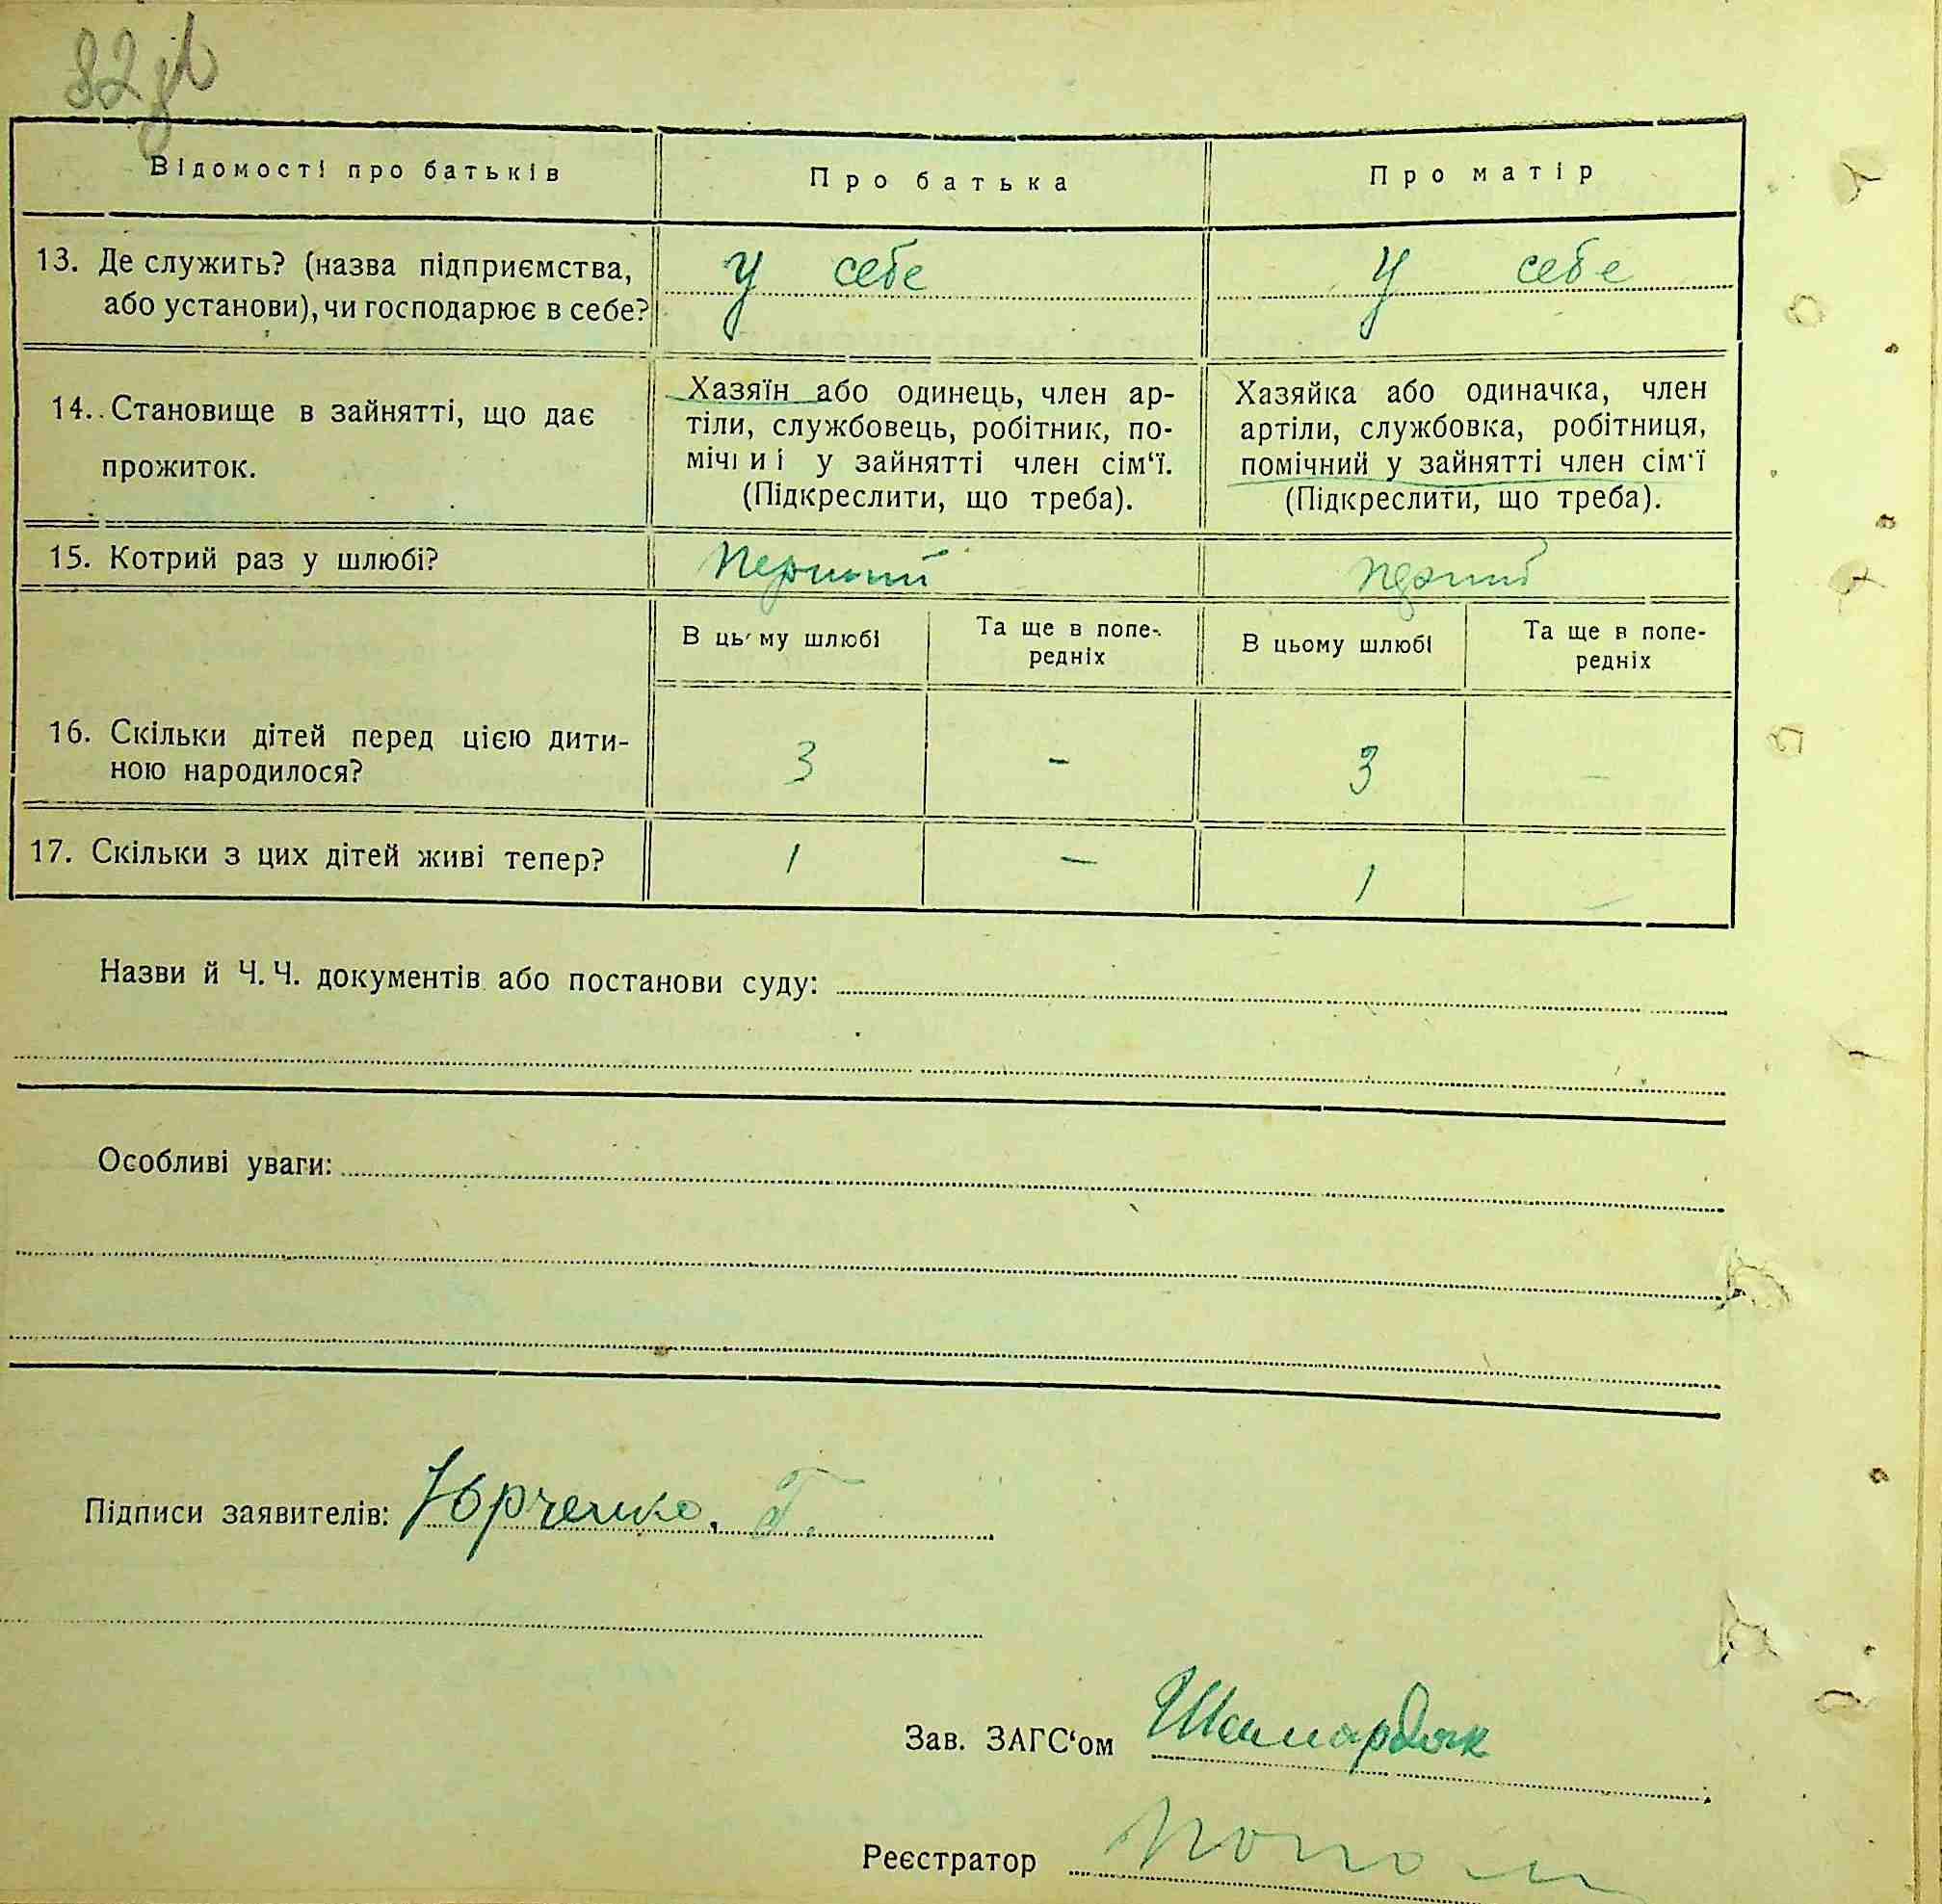 82
Відомості про батьків
Про батька
Про матір
13. Де служить? (назва підприємства,
або установи), чи господарює в себе?
у себе
у себе
14. Становище в зайнятті, що дає
прожиток.
Хазяїн або одинець, член ар-
тіли, службовець, робітник, по-
мічний у зайнятті член сім‘ї.
(Підкреслити, що треба).
Хазяйка або одиначка, член
артіли, службовка, робітниця,
помічний у зайнятті член сім‘ї
(Підкреслити, що треба).
15. Котрий раз у шлюбі?
перший
перший
В цьму шлюбі
Та ще в попе-
редніх
В цьому шлюбі
Та ще в попе-
редніх
16. Скільки дітей перед цією дити-
ною народилося?
3
-
3
-
17. Скільки з цих дітей живі тепер?
1
-
1
-
Назви й Ч. Ч. документів або постанови суду:
Особливі уваги:
Підписи заявителів: Юрченко. Г.
Зав. ЗАГС‘ом Шамардак
Реєстратор